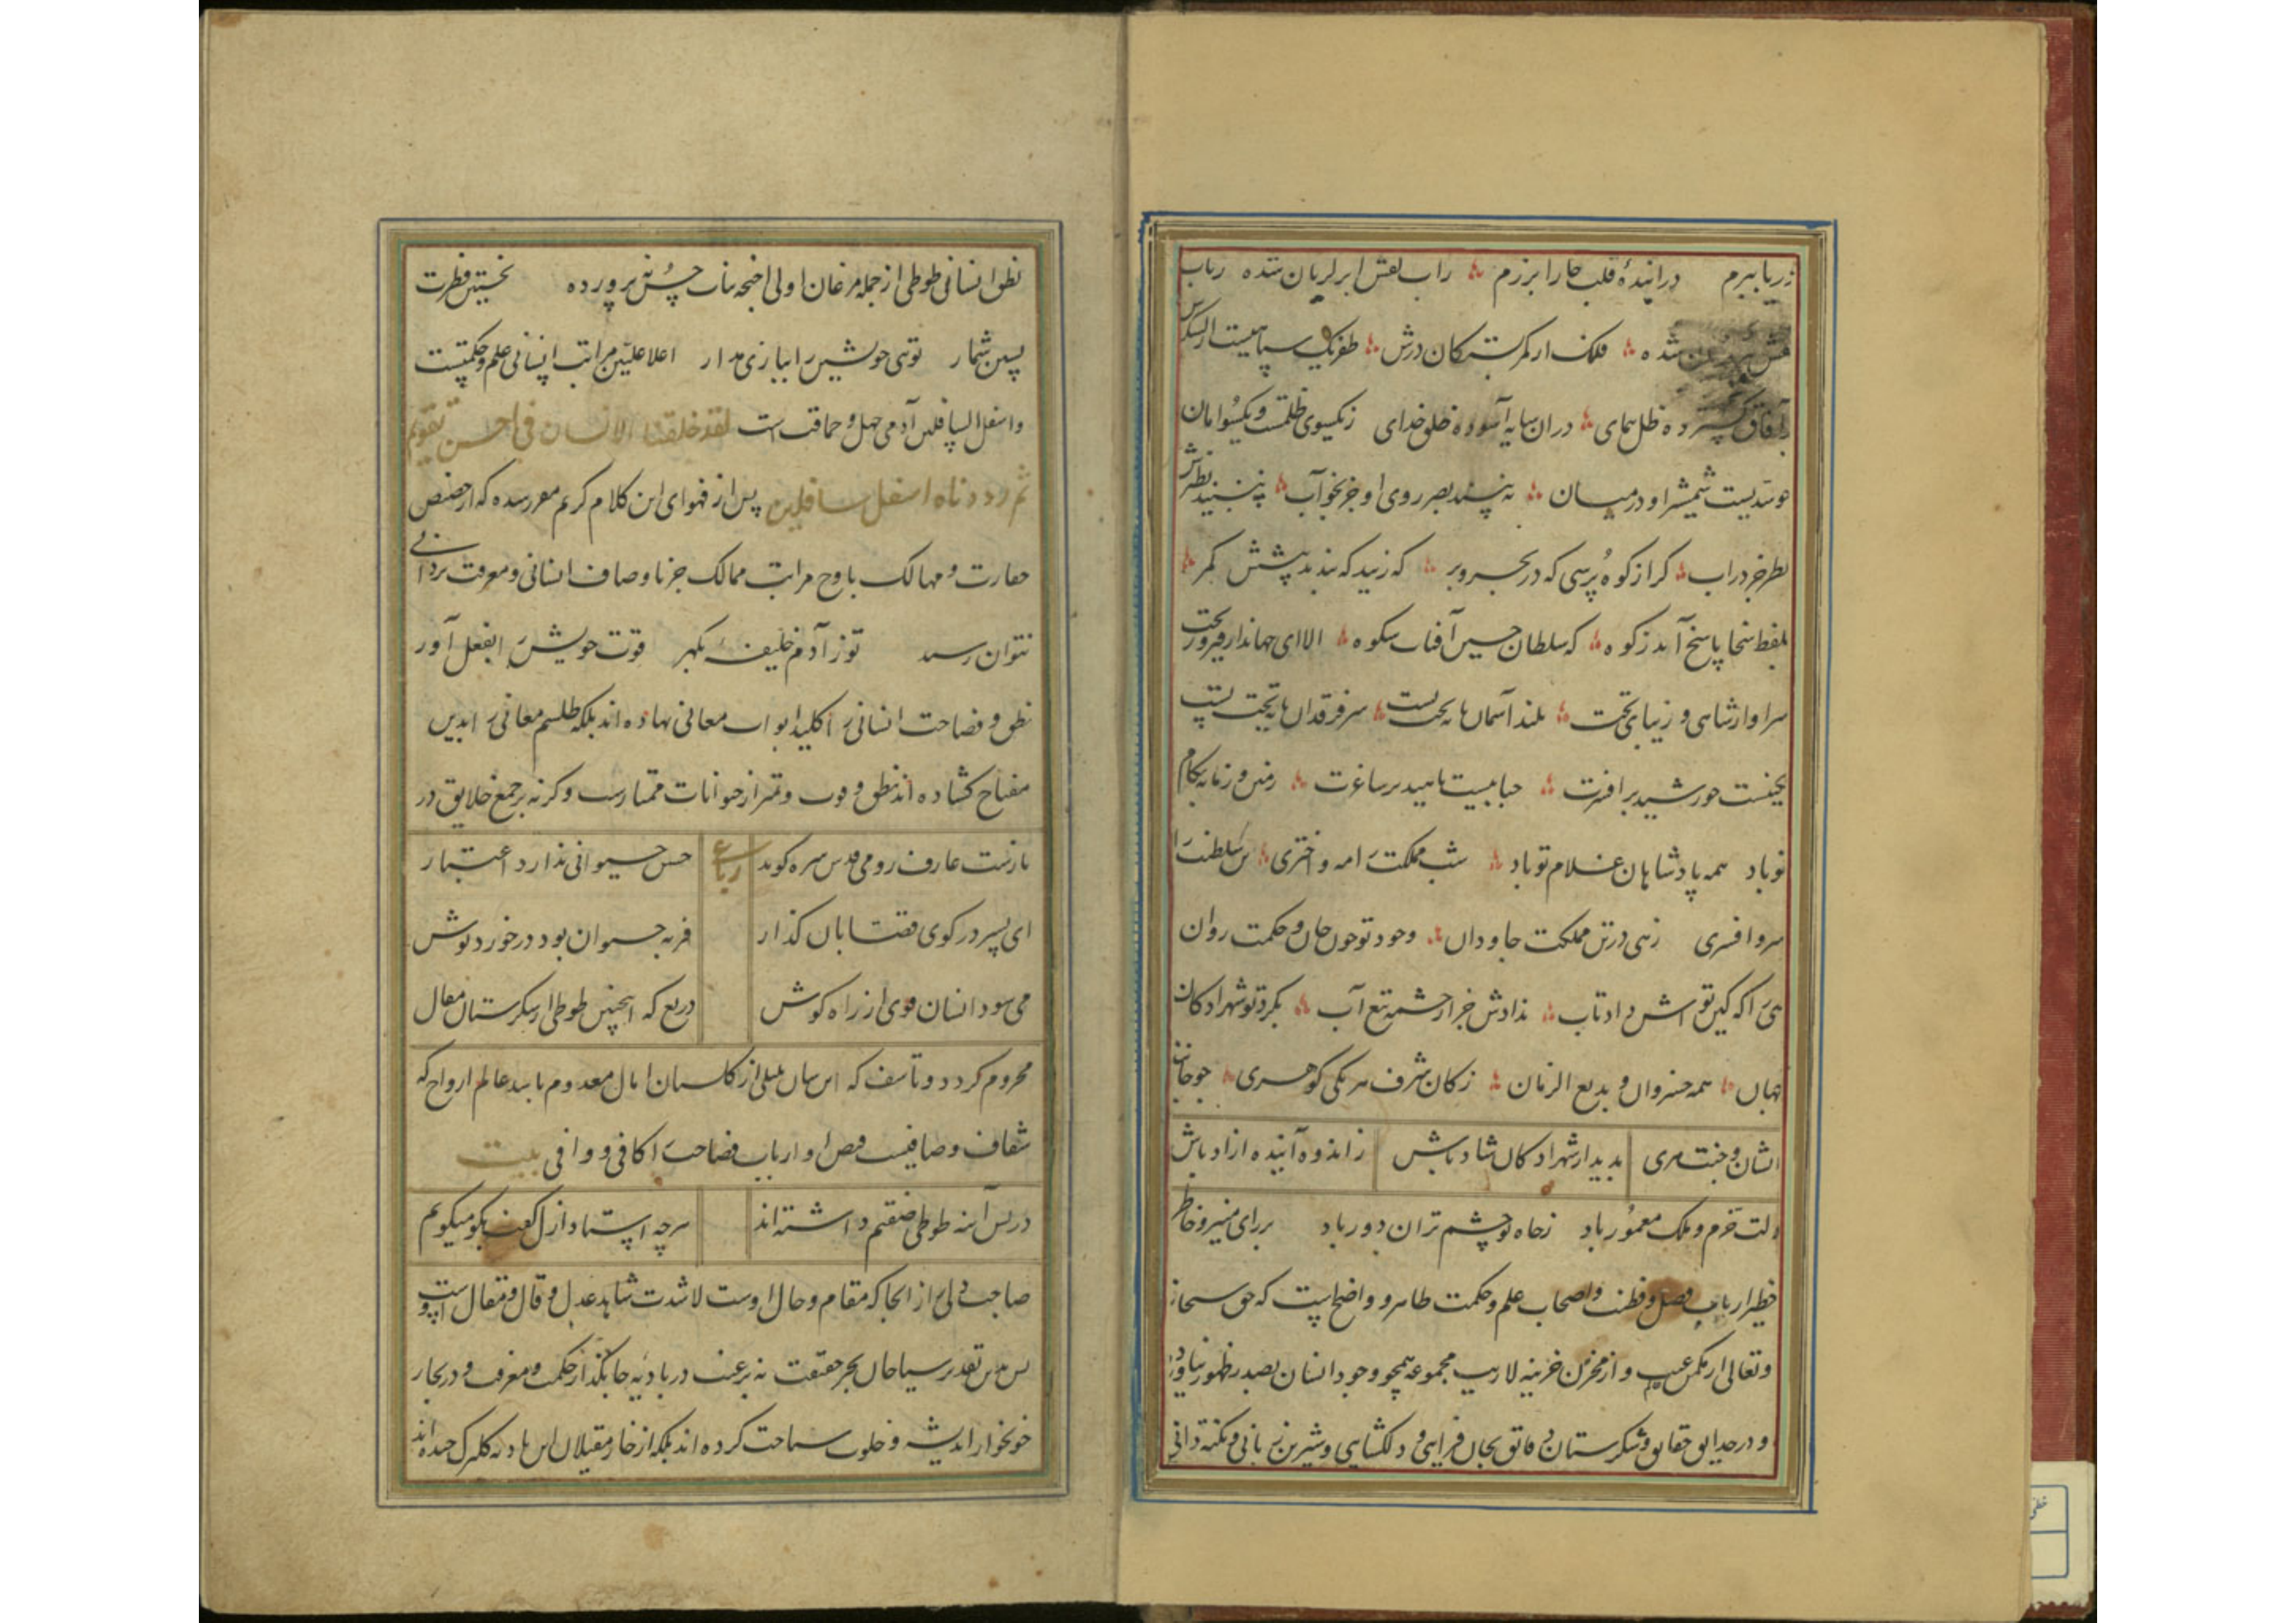 زریا ببرم درانیدهٔ قلب خارا برزم راب لعلش ابر لریان شده رباب
شده فلک از کمربستگان درش طفربک سپاهیست از لشکرش
بآفاق گسترده ظل همای دران سایه آسوده خلق خدای ز یکسوی ظلمت و یکسو امان
چو سدیست شمشیر او درمیان نه بیند بصر روی او جز بخواب نه بیند نظیرش
نظر جز در آب گر از کوه پرسی که در بحر و بر که زیبد که بندند پیشش کمر
بلفظ سخا پاسخ آید ز کوه که سلطان حسین آفتاب شکوه الا ای جهاندار فیروز بخت
سزاوار شاهی و زیبای تخت بلند آسمان پایه تخت تست سر فرقدان پایه تخت تست
خورشید بر افسرت حبابیست ناهید بر ساغرت زمین و زمانه بکام
تو باد همه پادشاهان غلام تو باد شب مملکت را مه و اختری سر سلطنت را
سر و افسری زهی در تن مملکت جاودان وجود تو چون جان و حکمت روان
هر آنکه کین تو اش داد تاب ندادش جز از چشمه تیغ آب بگرد تو شهزادگان
جهان همه خسروان و بدیع الزمان ز کان شرف هر یکی گوهری چو جانند
ایشان و جنت سری بدیدار شهزادگان شاد باش ز اندوه آینده آزاد باش
دلت خرم و ملک معمور باد ز جاه تو چشم بدان دور باد بر رای منیر و خاطر
خطیر ارباب فضل و فطنت و اصحاب علم و حکمت ظاهر و واضح است که حق سبحانه
و تعالی از مکمن غیب و از مخزن خزینه لاریب مجموعه همچو وجود انسان بصدر ظهور نیاورده
و در حدایق حقایق و شکرستان دقایق بجان فزایی و دلگشایی و شیرین زبانی و نکته دانی
نطق انسانی طوطی از جمله مرغان اولی اجنحه نپرورده نخستین فطرت
پسین شمار تویی خویشتن را ببازی مدار اعلا علیین مراتب انسانی علم و حکمتست
و اسفل السافلین آدمی جهل و حماقت است لقد خلقنا الانسان فی احسن تقویم
ثم رددناه اسفل سافلین پس از فحوای این کلام کریم مقرر شده که از حضیض
حقارت و مهالک باوج مراتب ممالک جز باوصاف انسانی و معرفت یزدانی
نتوان رسید تو ز آدم خلیفهٔ بگهر قوت خویش را بفعل آور
نطق و فصاحت انسانی را کلید ابواب معانی نهاده اند بلکه طلسم معانی را بدین
مفتاح گشاده اند بنطق و تمیز از حیوانات ممتازست و گرنه بر جمیع خلایق در
بازست عارف رومی قدس سره گوید رباعی حس حیوانی ندارد اعتبار
ای پسر در کوی قصابان گذار فربه حیوان بود در خورد و نوش
می شود انسان قوی از راه گوش دریغ که اینچنین طوطی از شکرستان مقال
محروم گردد و تاسف که این سان بلبلی از گلستان امال معدوم باشد عالم ارواح که
شفاف و صافیست فصحا و ارباب فصاحت را کافی و وافی بیت
در پس آینه طوطی صفتم داشته اند هرچه استاد ازل گفت بگو میگویم
صاحب دلی را از آنجا که مقام و حال اوست شاهد عدل و قال و مقال اوست
پس بدین تقدیر سیاحان بحر حقیقت نه بر عبث در بادیه جانگداز حکمت و معرفت و در بحار
خونخوار اندیشه و خلوت سیاحت کرده اند بلکه از خار مغیلان این بادیه گلبرگ چیده اند